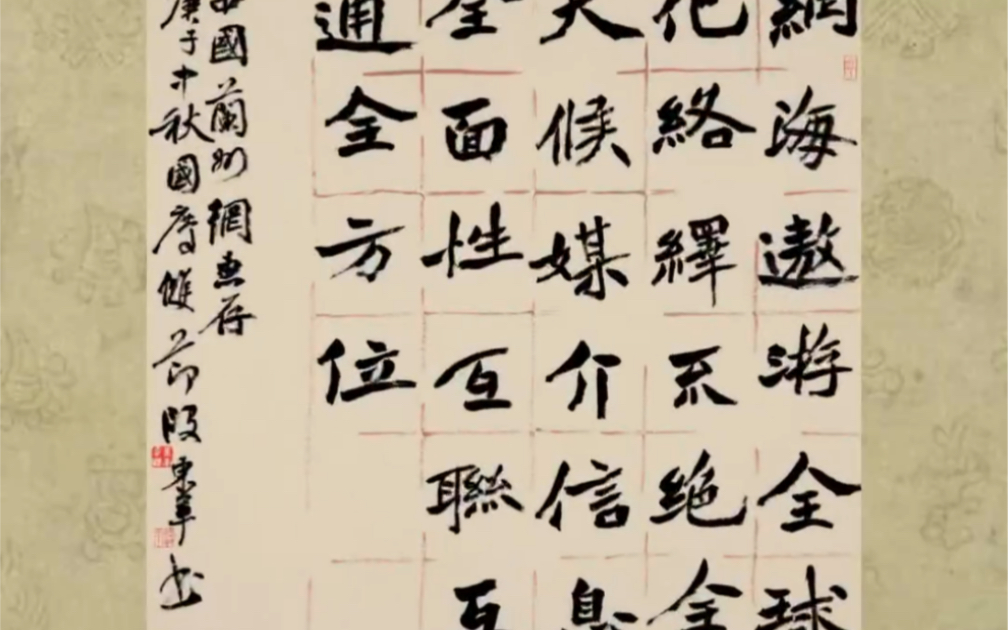 網海遨游全球
化絡繹不绝全
天候媒介信息
全面性互聯互
通全方位
國蘭州網惠存
庚子中秋國慶雙節段東華书